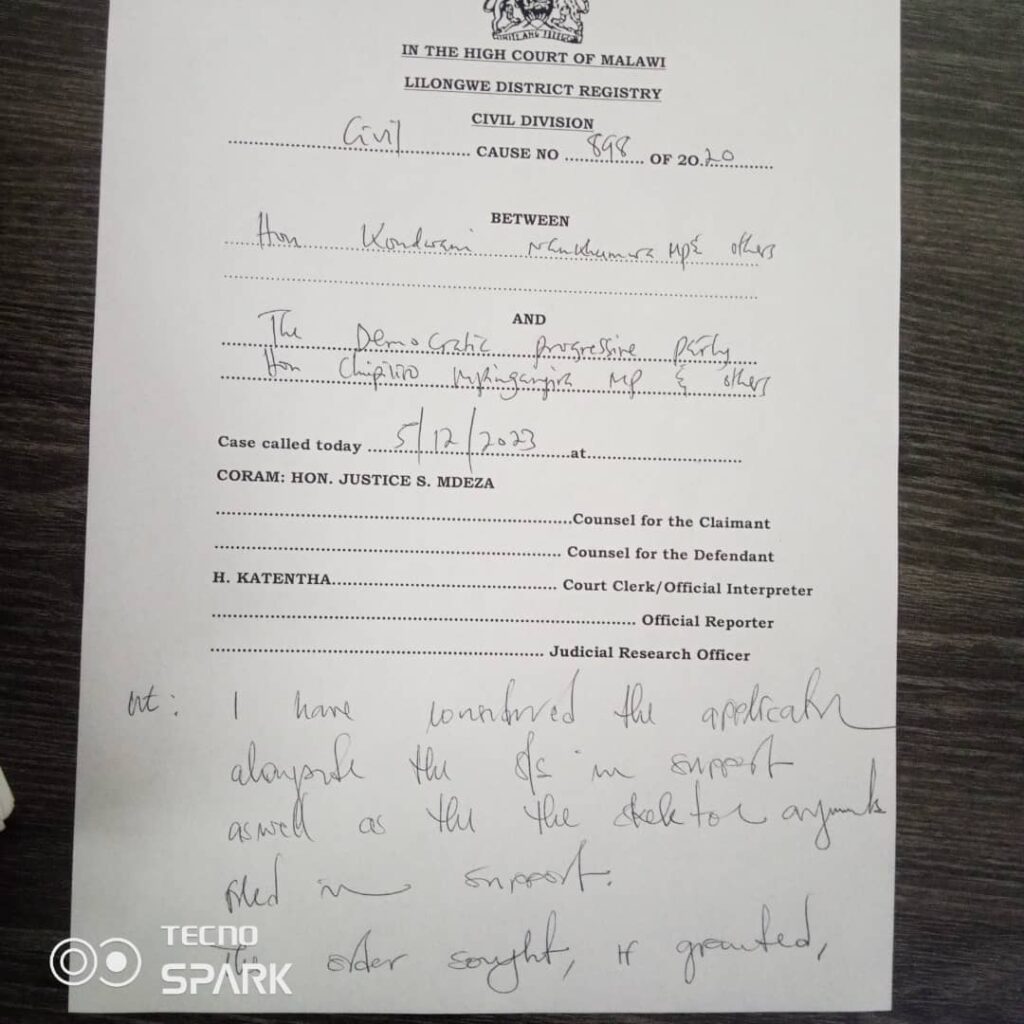 IN THE HIGH COURT OF MALAWI
LILONGWE DISTRICT REGISTRY
CIVIL DIVISION
Civil CAUSE NO 898 OF 20.20
BETWEEN
Hon Kondwani Nankhumwa MP & others
AND
The Democratic progressive party
Hon Chipiliro Mpinganjira MP & others
Case called today 5/12/2023 at
CORAM: HON. JUSTICE S. MDEZA
Counsel for the Claimant
Counsel for the Defendant
H. KATENTHA Court Clerk/Official Interpreter
Official Reporter
Judicial Research Officer
I have considered the application
alongside the S/s in support
aswell as the the skeleton arguments
filed in support.
The order sought, if granted,
TECNO
SPARK